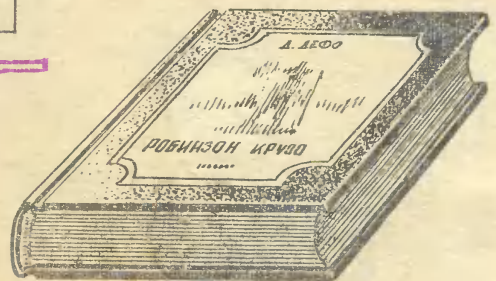 Д. ДЕФО
РОБИНЗОН КРУЗО